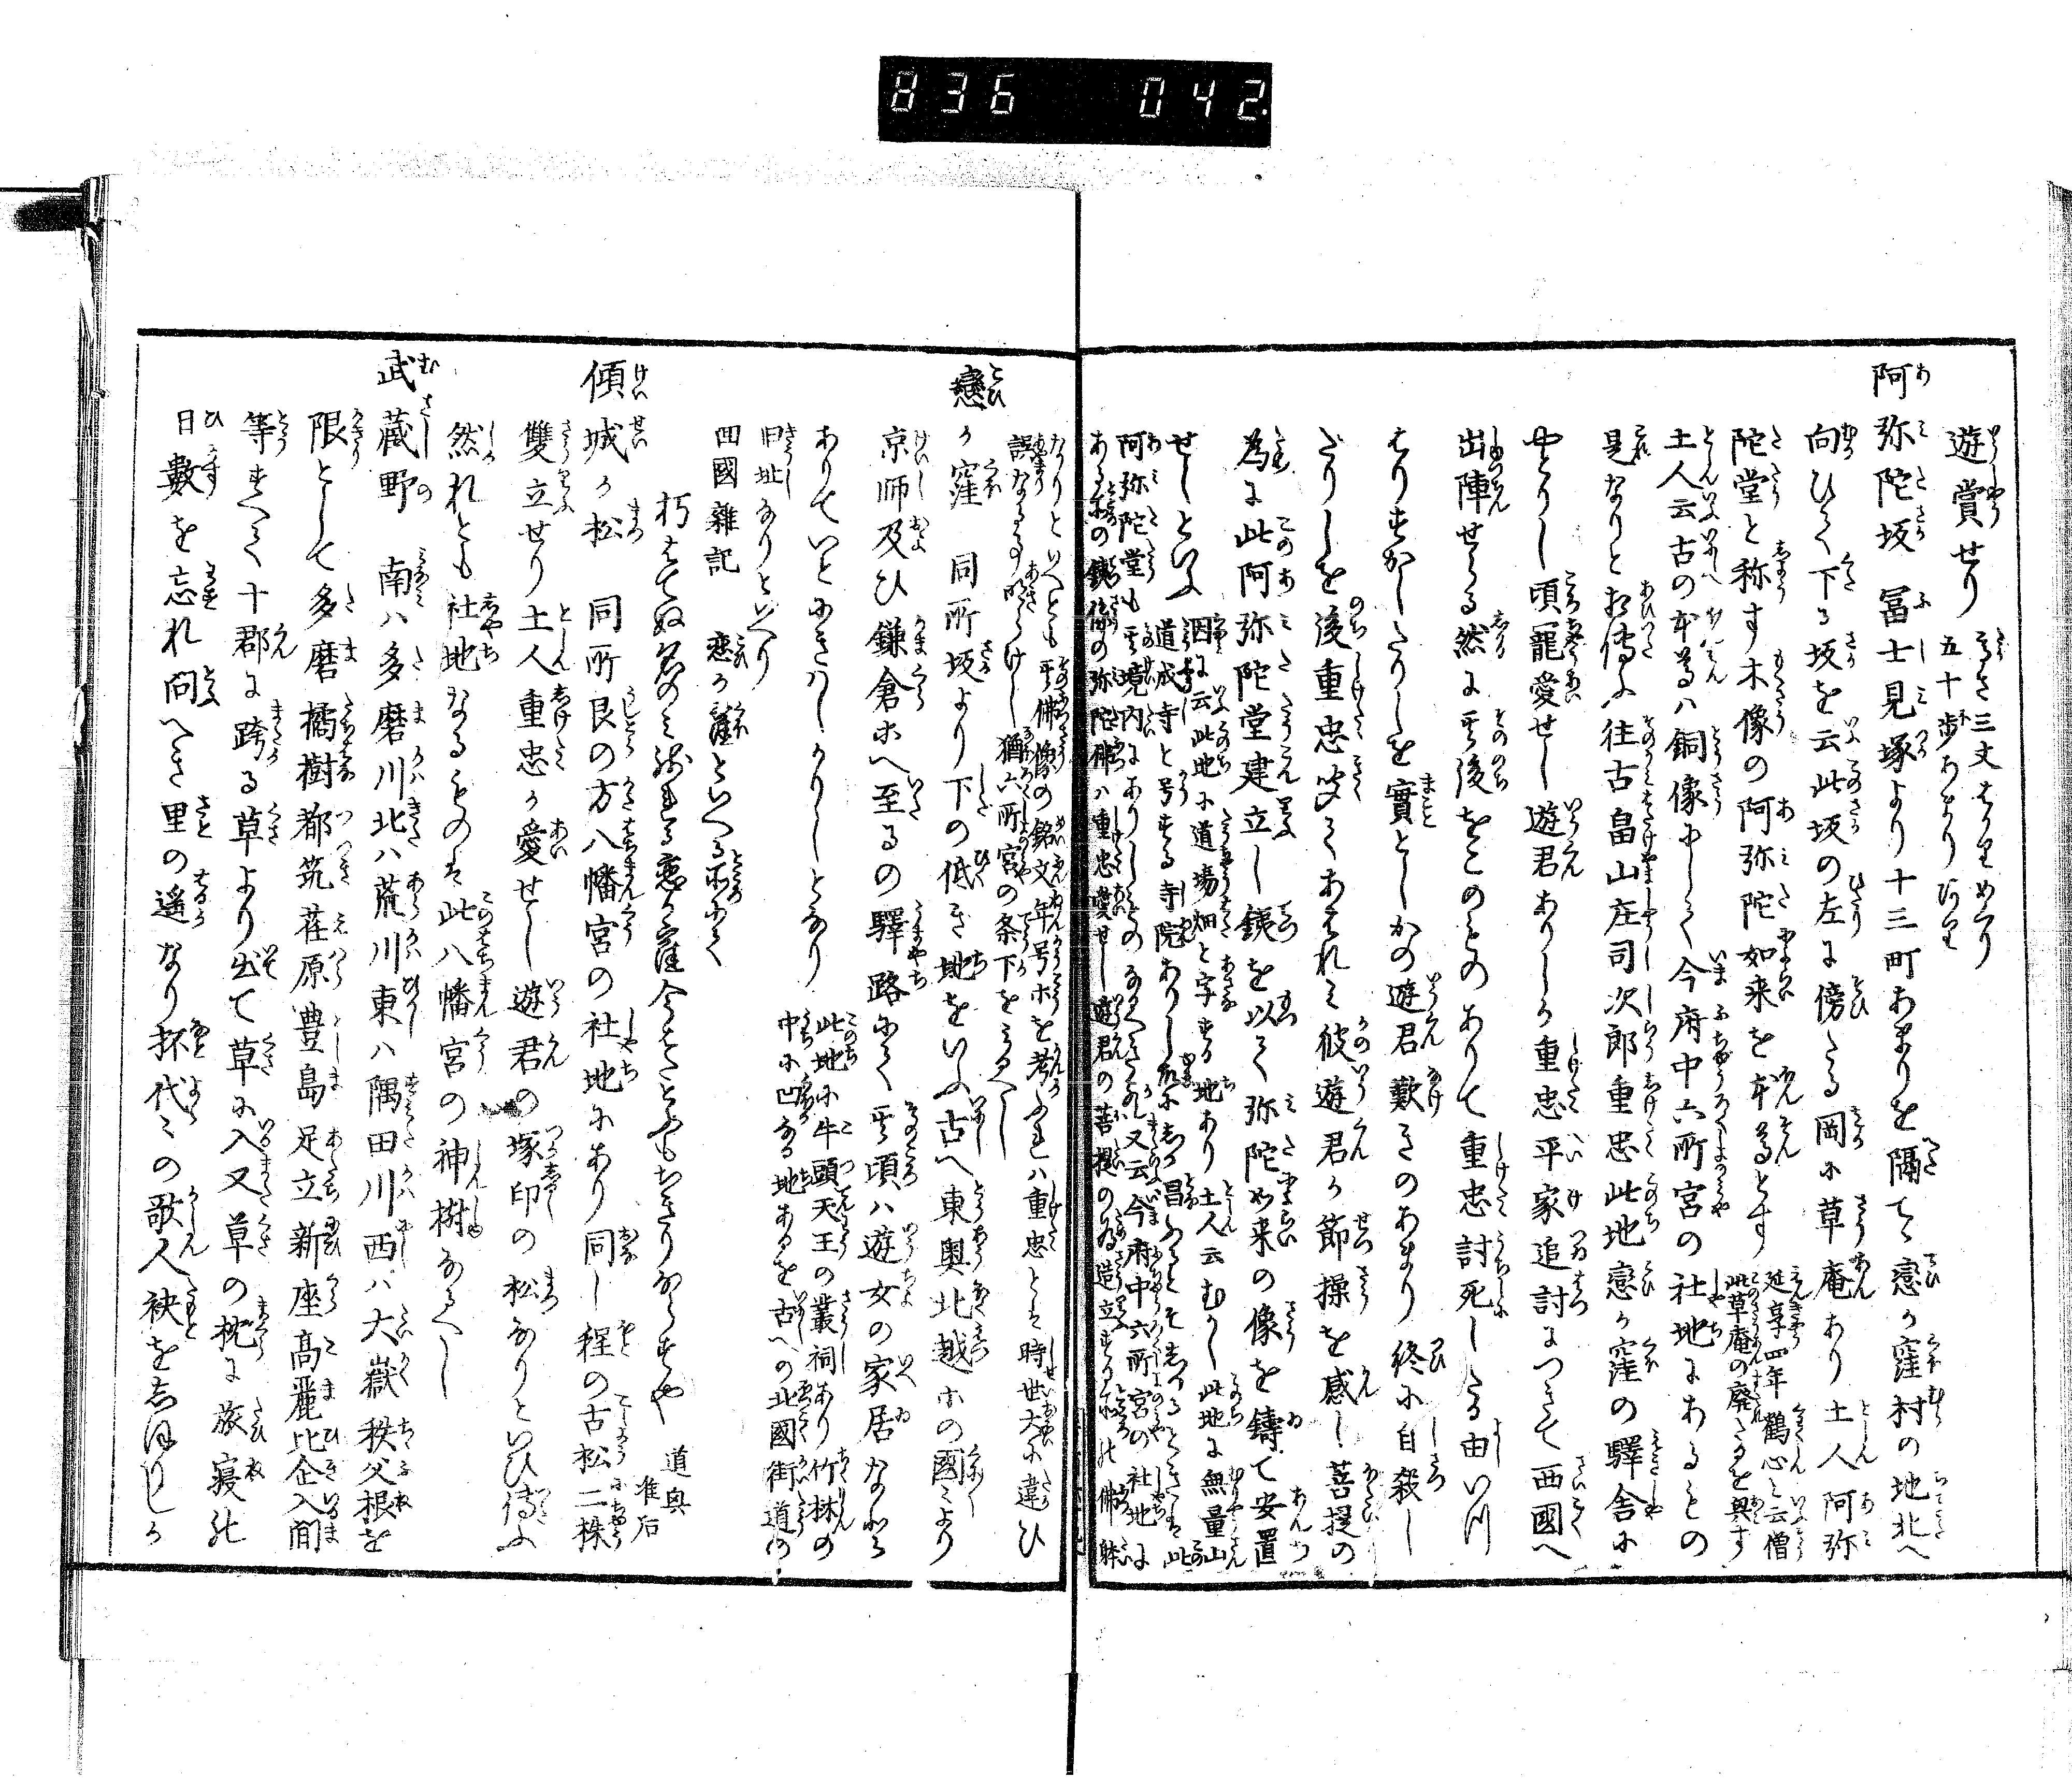 836 042
遊賞せり 高さ三丈はかりめくり
五十歩あまりあり
阿弥陀坂 冨士見塚より十三町あまりを隔てゝ戀か窪村の地北へ
向ひて下る坂を云此坂の左に傍たる岡に草庵あり土人阿弥
陀堂と称す木像の阿弥陀如来を本尊とす 延享四年鶴心と云僧
此草庵の廃たるを興す
土人云古の本尊ハ銅像にして今府中六所宮の社地にあるもの
是なりと相傳ふ往古畠山庄司次郎重忠此地戀か窪の驛舎に
やとりし頃寵愛せし遊君ありしか重忠平家追討につきて西國へ
出陣せる然に其後をこのものありて重忠討死したる由いつ
はりすかしたりしを實としかの遊君歎きのあまり終に自殺し
たりしを後重忠皈てあはれミ彼遊君か節操を感し菩提の
為に此阿弥陀堂建立し銕を以て弥陀如来の像を鋳て安置
せしといふ 因に云此地に道場畑と字する地あり土人云むかし此地に無量山
道成寺と号する寺院ありし
阿弥陀堂も其境内にありしもの 又云今府中六所宮の社地に
ある所の銕像の弥陀佛ハ重忠愛せし遊君の菩提の為造立する所の佛躰
なりといへとも其佛像の銘文年号ホを考ふれハ重忠とは時世大に違ひ
誤なる事明らけし猶六所宮の条下をみるへし
戀か窪 同所坂より下の低き地をいふ古へ東奥北越ホの國々より
京師及ひ鎌倉ホへ至るの驛路にて其頃ハ遊女の家居なと
ありていとにきハしかりしとなり 此地に牛頭天王の叢祠あり竹林の
中に凹なる地あるを古への北國街道の
旧址なりといへり
四國雜記 恋か窪といへる所にて
朽はてぬ名のミ残れる恋か窪今はたとふもちきりならすや 道興
准后
傾城か松 同所艮の方八幡宮の社地にあり同し程の古松二株
雙立せり土人重忠か愛せし遊君の塚印の松なりといひ傳ふ
然れとも社地なるものは此八幡宮の神樹なるへし
武藏野 南ハ多磨川北ハ荒川東ハ隅田川西ハ大嶽秩父根を
限として多磨橘樹都筑荏原豊島足立新座髙麗比企入間
等すへて十郡に跨る草より出て草に入又草の枕に旅寝の
日數を忘れ問へき里の遥なり抔代々の歌人袂をしほりしか